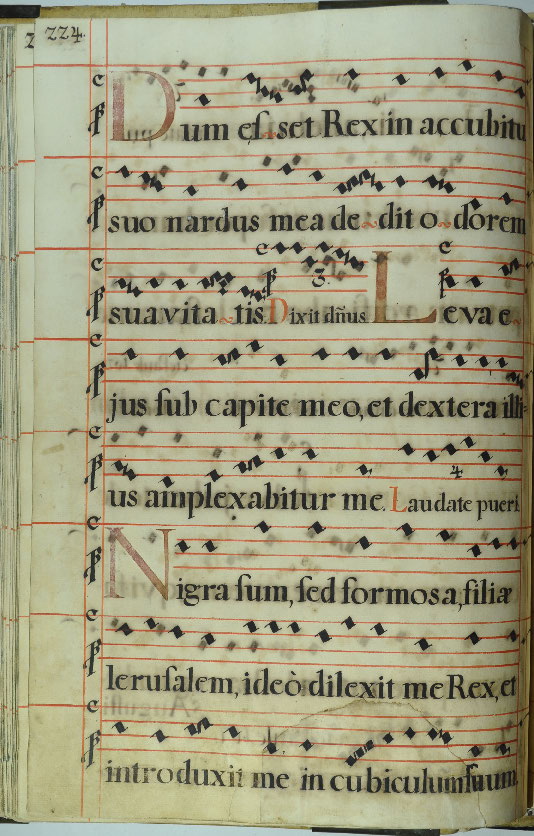 224.
Dum eſ-set Rex in accubitu
suo nardus mea de-dit o-dorem
suavita-tis Dixit dñus Leva e-
jus ſub capite meo, et dextera illi-
us amplexabitur me. Laudate pueri
Nigra ſum, ſed formosa, filiæ
Ieruſalem, ideò dilexit me Rex, et
introduxit me in cubiculum ſuum